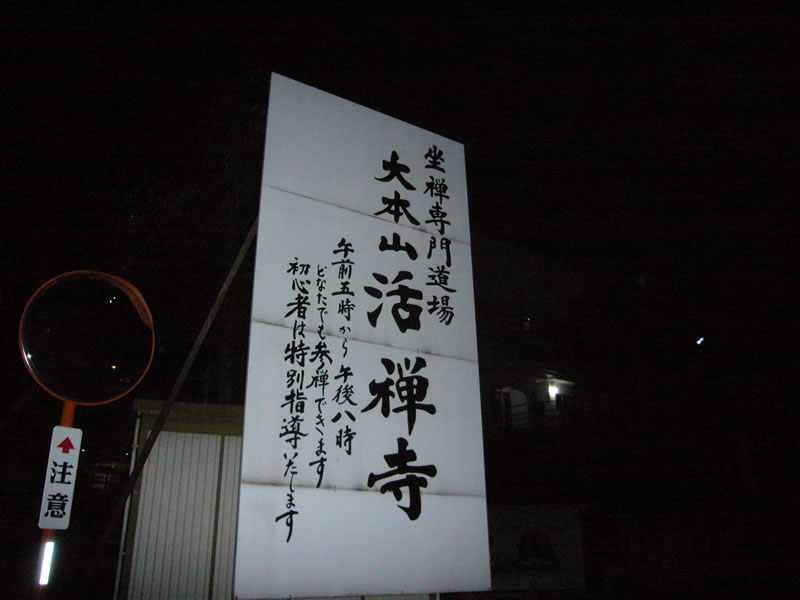 坐禅専門道場
大本山活禅寺
午前五時から午後八時
どなたでも参禅できます
初心者は特別指導いたします
注意